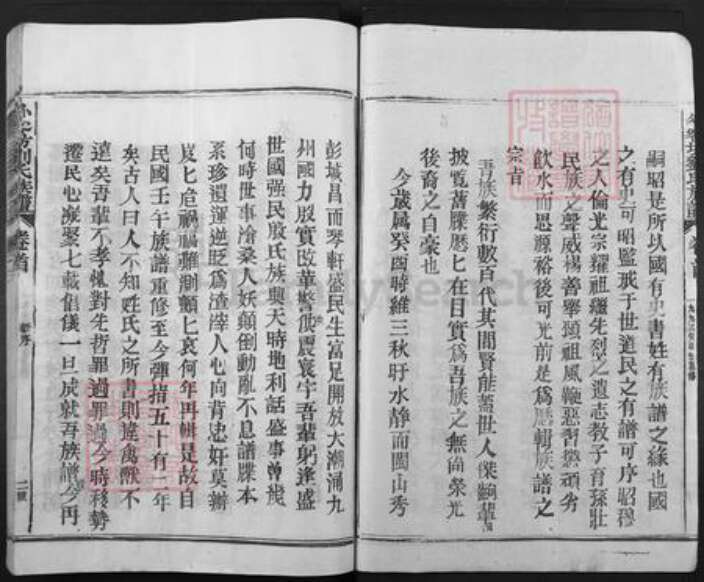 嗣昭是所以國有史書姓有族譜之緣也國
之有史可昭監戒于世道民之有譜可序昭穆
之人倫光宗耀祖繼先烈之遺志教子育孫壯
民族之聲威揚善舉頌祖風鞭惡習懲頑劣
飲水而思源裕後可光前是為歷輯族譜之
宗旨
吾族繁衍數百代其間賢能蓋世人傑嗣輩
披覧舊牒歷匕在目實為吾族之無尚榮光
後裔之自豪也
今歲属癸酉時維三秋盱水静而閩山秀
彭城昌而琴軒盛民生富足開放大潮涌九
州國力殷實改革驚俄震寰宇吾輩躬逢盛
世國强民殷氏族興天時地利話盛事曾幾
何時世事滄桑人妖顛倒動亂不息譜牒本
系珍遺運逆貶為渣滓人心向背忠奸莫辦
岌匕危禍福難測顫匕哀何年再輯是故自
民國壬午族譜重修至今彈指五十有二年
矣古人曰人不知姓氏之所書則違禽獸不
遠矣吾輩不孝愧對先哲罪過罪過今時移勢
遷民心凝聚七載倡儀一旦成就吾族譜今再
劉氏族譜
卷首
新序
二號